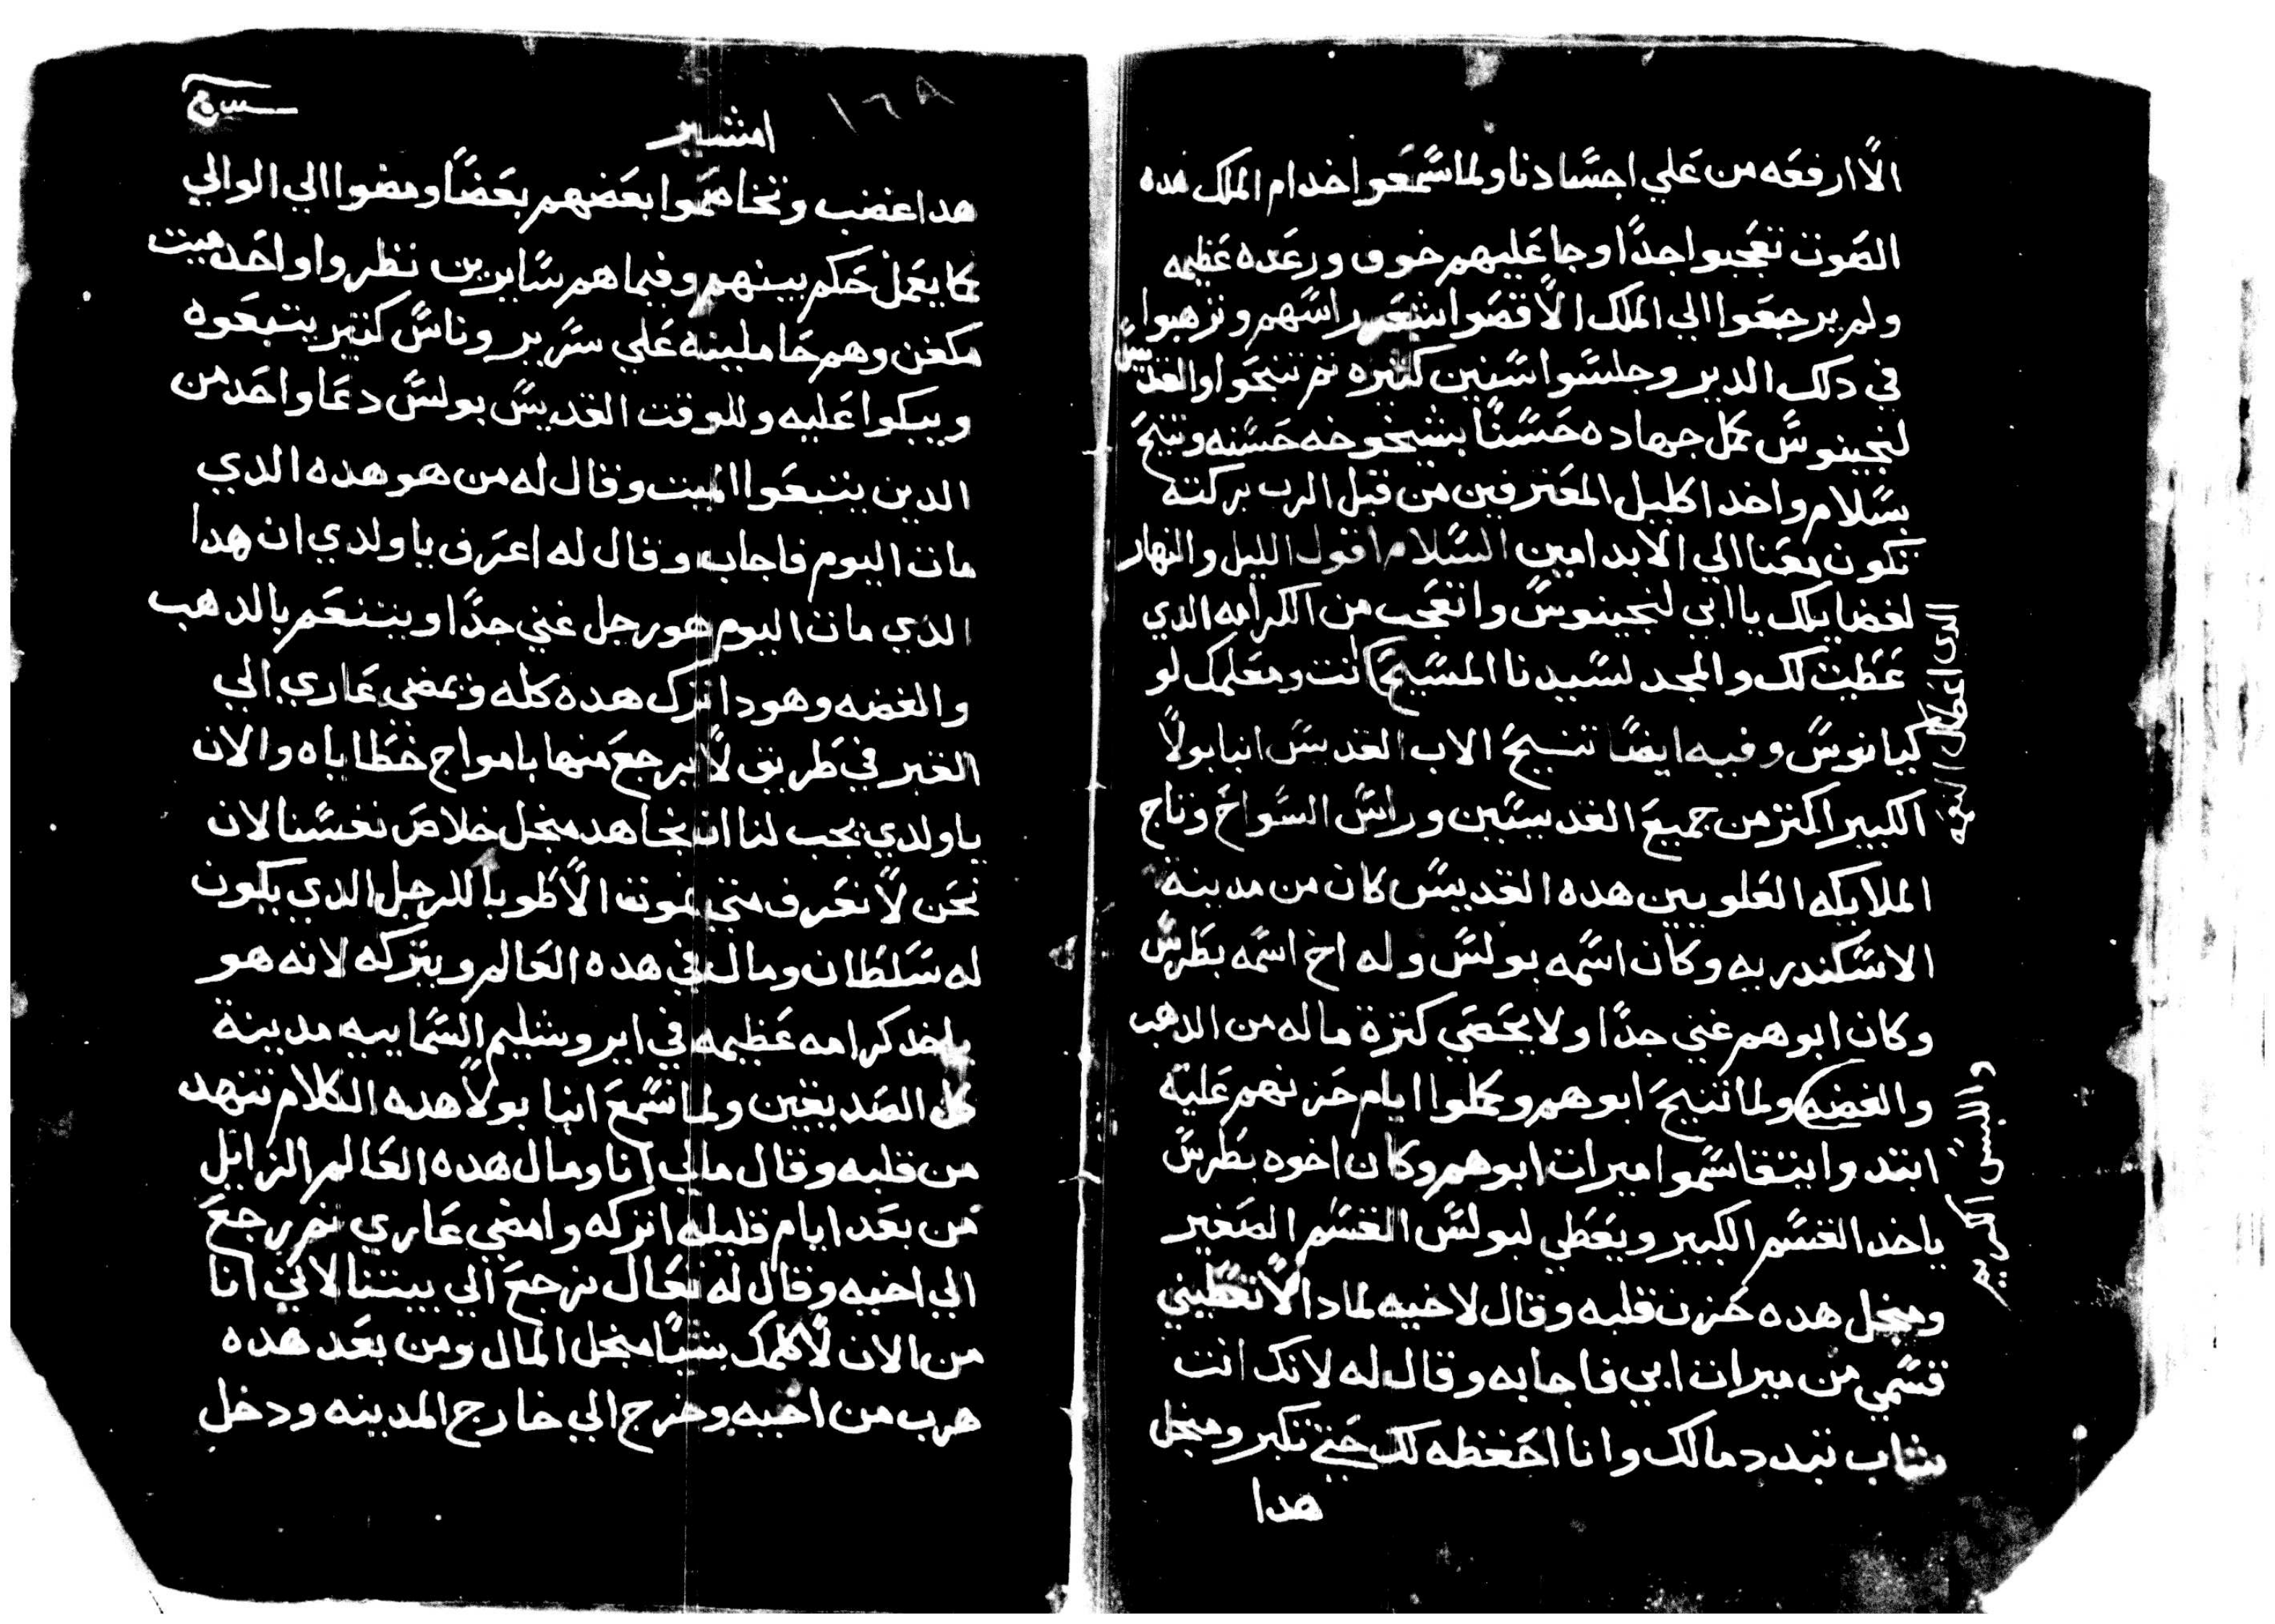 الا ارفعه من علي اجسادنا ولما سمعوا خدام الملك هده
الصوت تعجبوا جدا وجا عليهم خوف ورعده عظيمه
ولم يرجعوا الي الملك الا قصوا شعر راسهم وترهبوا
في دلك الدير وجلسوا سنين كتيره تم تنيحوا والقديس
لنجينوس كمل جهاده حسنا بشيخوخه حسنه وتنيح
بسلام واخد اكليل المعترفين من قبل الرب بركته
تكون معنا الي الابد امين السلام اقول الليل والنهار
لفضايلك يا ابي لنجينوس واتعجب من الكرامه الدي
عطيت لك والمجد لسيدنا المسيح انت ومعلمك لو
كيانوس وفيه ايضا تنيح الاب القديس انبا بولا
الكبير اكتر من جميع القديسين وراس السواح وتاج
الملايكه العلويين هده القديس كان من مدينة
الاسكندريه وكان اسمه بولس وله اخ اسمه بطرس
وكان ابوهم غني جدا ولا يحصي كترة ماله من الدهب
والفضه ولما تنيح ابوهم وكملوا ايام حزنهم عليه
ابتدوا يتقاسموا ميرات ابوهم وكان اخوه بطرس
ياخد القسم الكبير ويعطي لبولس القسم الصغير
ومنجل هده حزن قلبه وقال لاخيه لمادا لا تعطيني
قسمي من ميرات ابي فاجابه وقال له لانك انت
شاب تبدد مالك وانا احفظه لك حتي تكبر ومنجل
هدا
والللبس الكريم
امشير
هدا غضب وتخاصموا بعضهم بعضا ومضوا الي الوالي
كما يعمل حكم بينهم وفيما هم سايرين نظروا واحد ميت
مكفن وهم حاملينه علي سرير وناس كتير يتبعوه
ويبكوا عليه وللوقت القديس بولس دعا واحد من
الدين يتبعوا الميت وقال له من هو هده الدي
مات اليوم فاجاب وقال له اعرف يا ولدي ان هدا
الدي مات اليوم هو رجل غني جدا ويتنعم بالدهب
والفضه وهودا ترك هده كله ويمضي عاري الي
القبر في طريق لا يرجع منها بامواج خطاياه والان
يا ولدي يجب لنا ان نجاهد منجل خلاص نفسنا لان
نحن لا نعرف متي نموت الا طوبا للرجل الدي يكون
له سلطان ومال في هده العالم ويتركه لانه هو
ياخد كرامه عظيمه في ايروشليم السماييه مدينة
كل الصديقين ولما سمع انبا بولا هده الكلام تنهد
من قلبه وقال مالي انا ومال هده العالم الزايل
من بعد ايام قليله اتركه وامضي عاري تم رجع
الي اخيه وقال له تعال نرجع الي بيتنا لاني انا
من الان لا اكلمك بشيا منجل المال ومن بعد هده
هرب من اخيه وخرج الي خارج المدينه ودخل